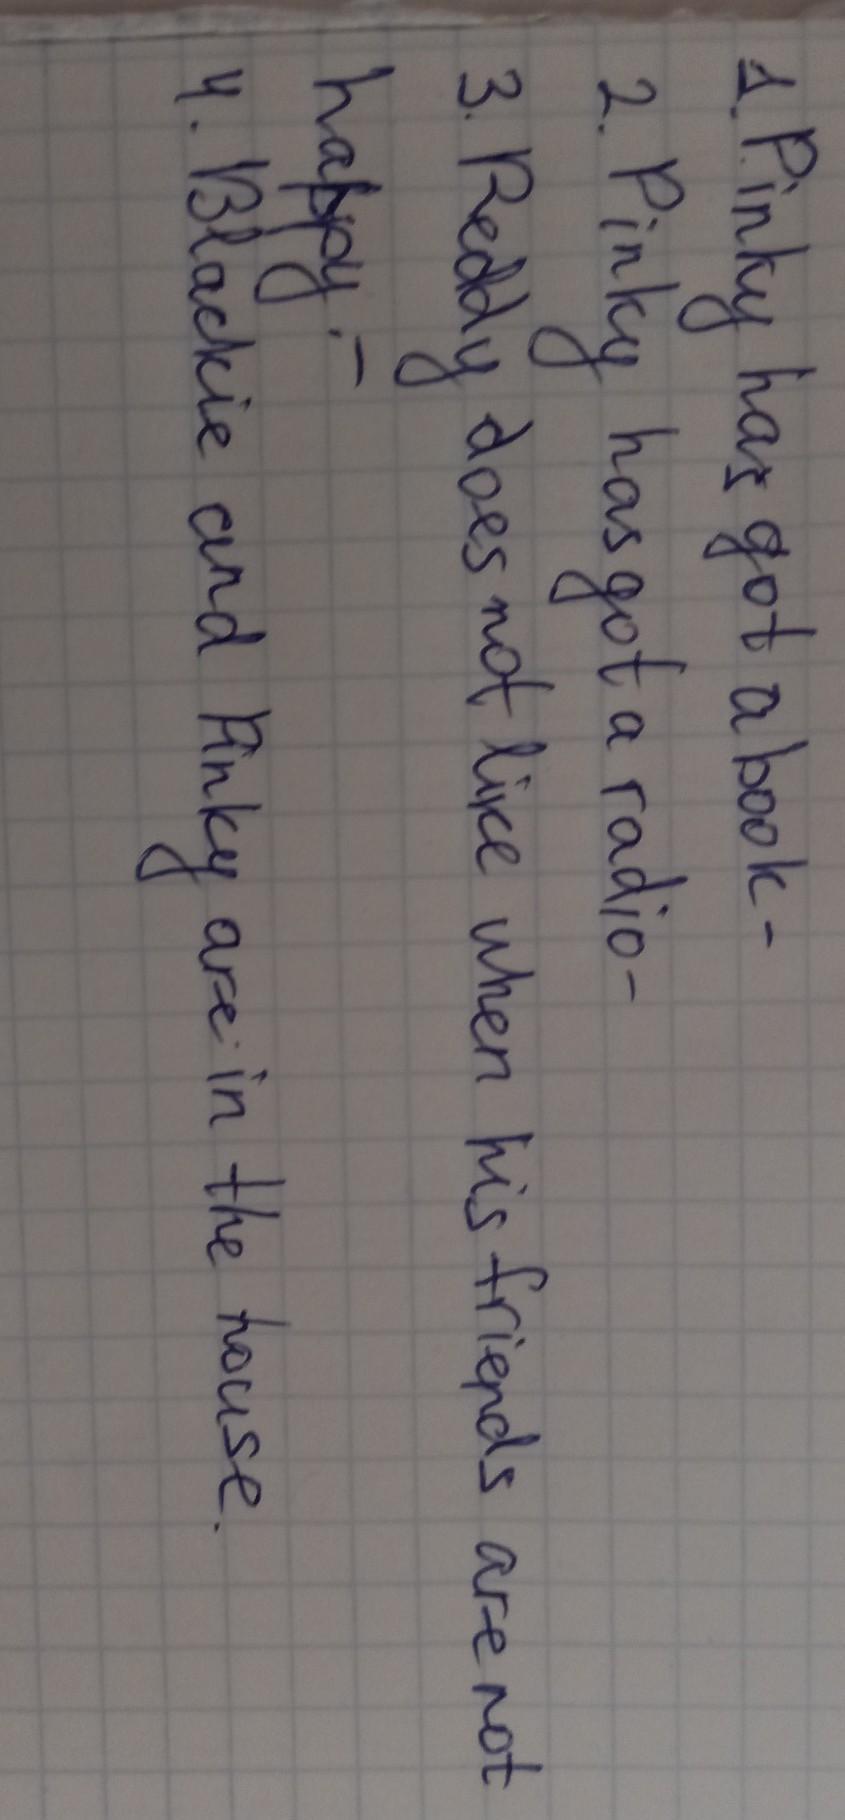 1. Pinky has got a book -
2. Pinky has got a radio -
3. Reddy does not like when his friends are not
happy. -
4. Blackie and Pinky are in the house.